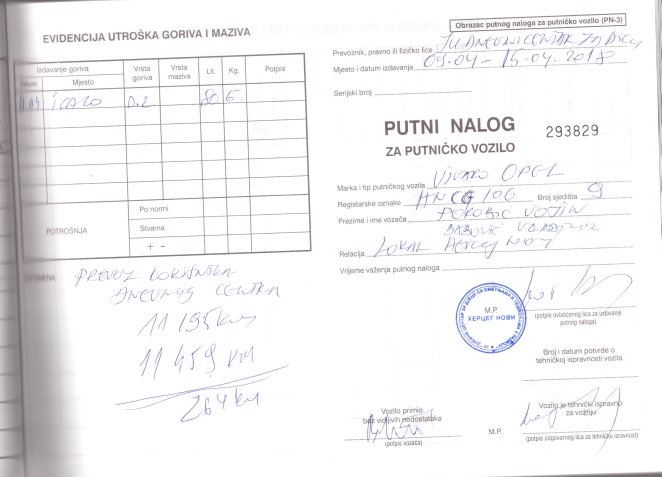 EVIDENCIJA UTROŠKA GORIVA I MAZIVA
Izdavanje goriva
Vrsta goriva
Vrsta maziva
Lit.
Kg.
Potpis
Mjesto
D.2
80 €
POTROŠNJA
Po normi
Stvarna
+ -
PREVOZ KORISNIKA
DNEVNOG CENTRA
11 195 km
11 459 km
264 km
Obrazac putnog naloga za putničko vozilo (PN-3)
Prevoznik, pravno ili fizičko lice JU DNEVNI CENTAR ZA DJECU
Mjesto i datum izdavanja 09.04 - 15.04.2018
Serijski broj
PUTNI NALOG
293829
ZA PUTNIČKO VOZILO
Marka i tip putničkog vozila VIVARO OPEL
Registarske oznake HN CG 106 Broj sjedišta 9
Prezime i ime vozača POROBIĆ VOJIN
Relacija LOKAL HERCEG NOVI
Vrijeme važenja putnog naloga
M.P.
ХЕРЦЕГ НОВИ
(potpis ovlašćenog lica za izdavanje
putnog naloga)
Broj i datum potvrde o
tehničkoj ispravnosti vozila
Vozilo primio
bez vidljivih nedostataka
(potpis vozača)
M.P.
Vozilo je tehnički ispravno
za vožnju
(potpis odgovornog lica za tehničku isravnost)